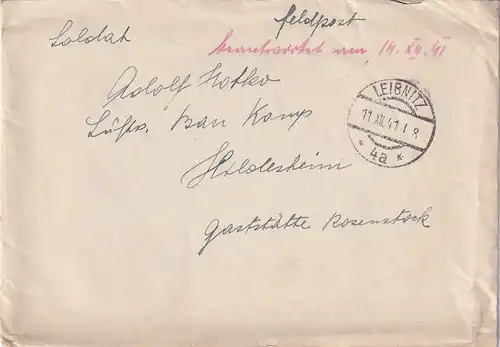 Feldpost
Soldat
beantwortet am 14. XII. 41
Adolf Hotko
Luftw. Bau Komp
Hildesheim
Gaststätte Rosenstock
LEIBNITZ
11.XII.41.18
* 4a *